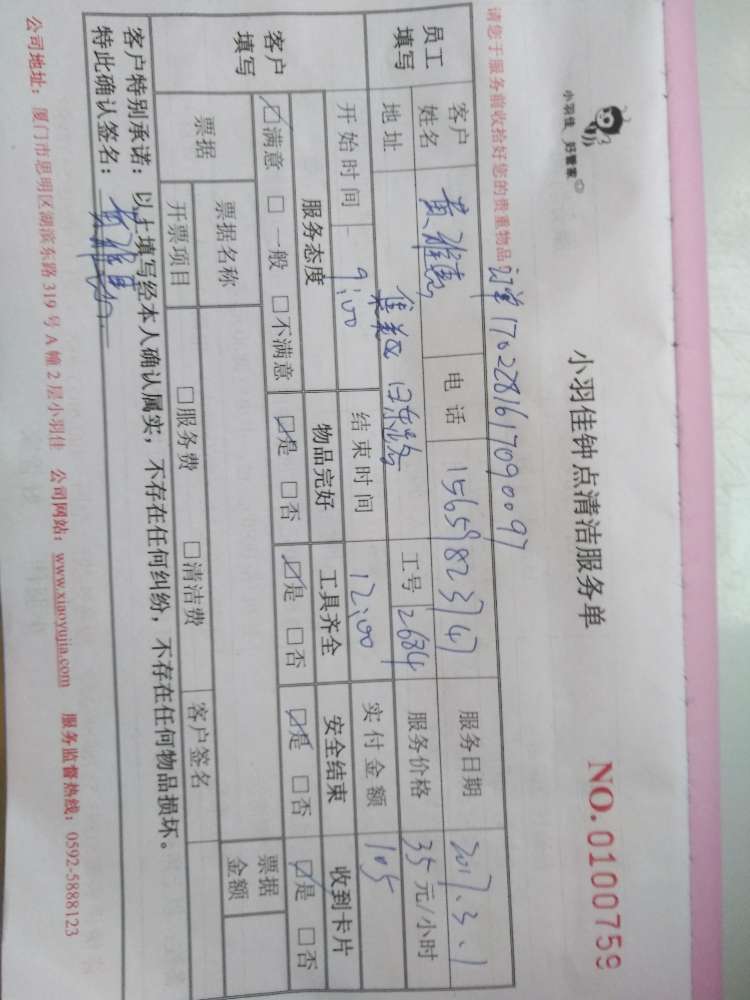 小羽佳 好管家
小羽佳钟点清洁服务单
NO. 0100759
请您于服务前收拾好您的贵重物品
订单170228161709009
员工填写
客户姓名
电话 15659823747
服务日期 2017.3.1
地址 集美区
工号 2684
服务价格 35元/小时
开始时间 9:00
结束时间 12:00
实付金额 105
客户填写
服务态度 物品完好 工具齐全 安全结束 收到卡片
☑满意 □一般 □不满意 ☑是 □否 ☑是 □否 ☑是 □否 ☑是 □否
票据
票据名称
票据金额
开票项目 □服务费 □清洁费 客户签名
客户特别承诺：以上填写经本人确认属实，不存在任何纠纷，不存在任何物品损坏。
特此确认签名：
公司地址：厦门市思明区湖滨东路319号A幢2层小羽佳 公司网站：www.xiaoyujia.com 服务监督热线：0592-5888123